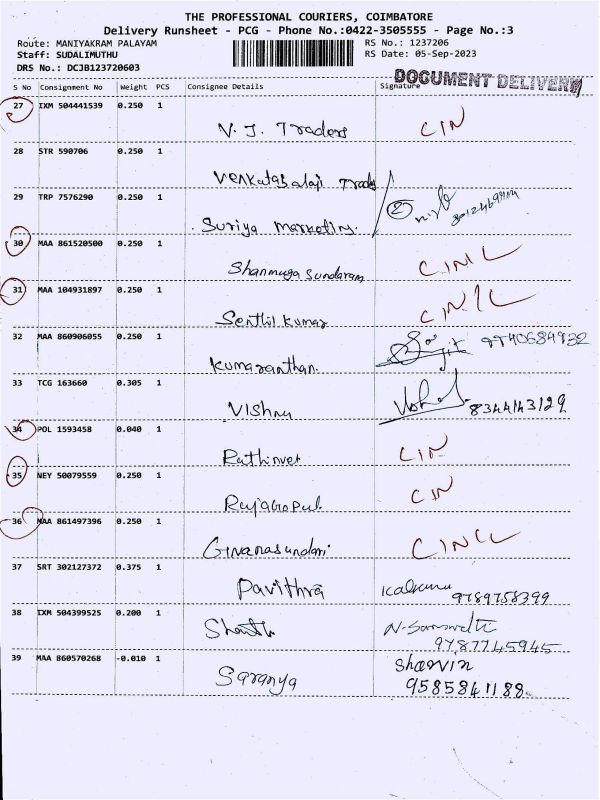 THE PROFESSIONAL COURIERS, COIMBATORE
Delivery Runsheet - PCG - Phone No.:0422-3505555 - Page No.:3
Route: MANIYAKRAM PALAYAM RS No.: 1237206
Staff: SUDALIMUTHU RS Date: 05-Sep-2023
DRS No.: DCJB123720603
DOCUMENT DELIVERY
S No Consignment No Weight PCS Consignee Details Signature
27 IXM 504441539 0.250 1 V. J. Traders CIN
28 STR 590706 0.250 1 Venkatasalaji
29 TRP 7576290 0.250 1 Suriya Marketing. 2
30 MAA 861520500 0.250 1 Shanmuga Sundaram CINL
31 MAA 104931897 0.250 1 Senthil Kumar
32 MAA 860906055 0.250 1 Kumaranthan. 9740684932
33 TCG 163660 0.305 1 Vishnu 8344143129
34 POL 1593458 0.040 1 Rathinvel CIN
35 NEY 50079559 0.250 1 Rajagopal. CIN
36 MAA 861497396 0.250 1 Gnanasundari
37 SRT 302127372 0.375 1 Pavithra 9789758399
38 IXM 504399525 0.200 1 9787745945
39 MAA 860570268 -0.010 1 Saranya Sharvin
9585841188